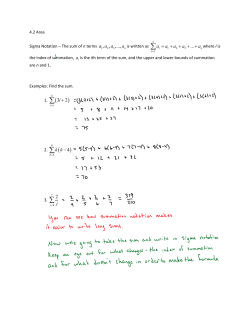 4.2 Area
Sigma Notation – The sum of n terms a₁, a₂, a₃, ..., aₙ is written as ∑ aᵢ = a₁ + a₂ + a₃ + ... + aₙ where i is
the index of summation, aᵢ is the ith term of the sum, and the upper and lower bounds of summation
are n and 1.
Examples: Find the sum.
= 5 + 8 + 11 + 14 + 17 + 20
= 13 + 25 + 37
= 75
= 5(5-4) + 6(6-4) + 7(7-4) + 8(8-4)
= 5 + 12 + 21 + 32
= 17 + 53
= 70
= 2/4 + 2/5 + 2/6 + 2/7 = 319/210
You can see how summation notation makes
it easier to write long sums.
Now we're going to take the sum and write in sigma notation
Keep an eye out for what changes – the index of summation
and for what doesn't change in order to make the formula